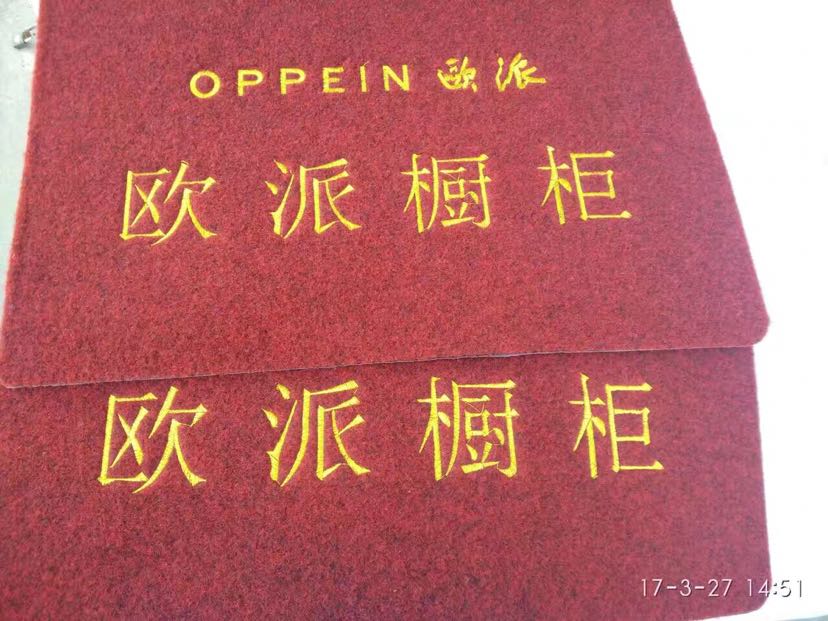 OPPEIN 欧派
欧派橱柜
欧派橱柜
17-3-27 14:51